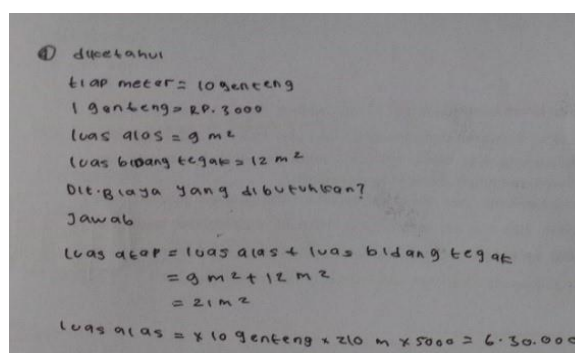 ① diketahui
tiap meter = 10 genteng
1 genteng = RP. 3000
luas alas = 9 m²
luas bidang tegak = 12 m²
Dit. Biaya yang dibutuhkan?
Jawab
luas atap = luas alas + luas bidang tegak
= 9 m² + 12 m²
= 21 m²
luas alas = x 10 genteng x 210 m x 5000 = 6.30.000